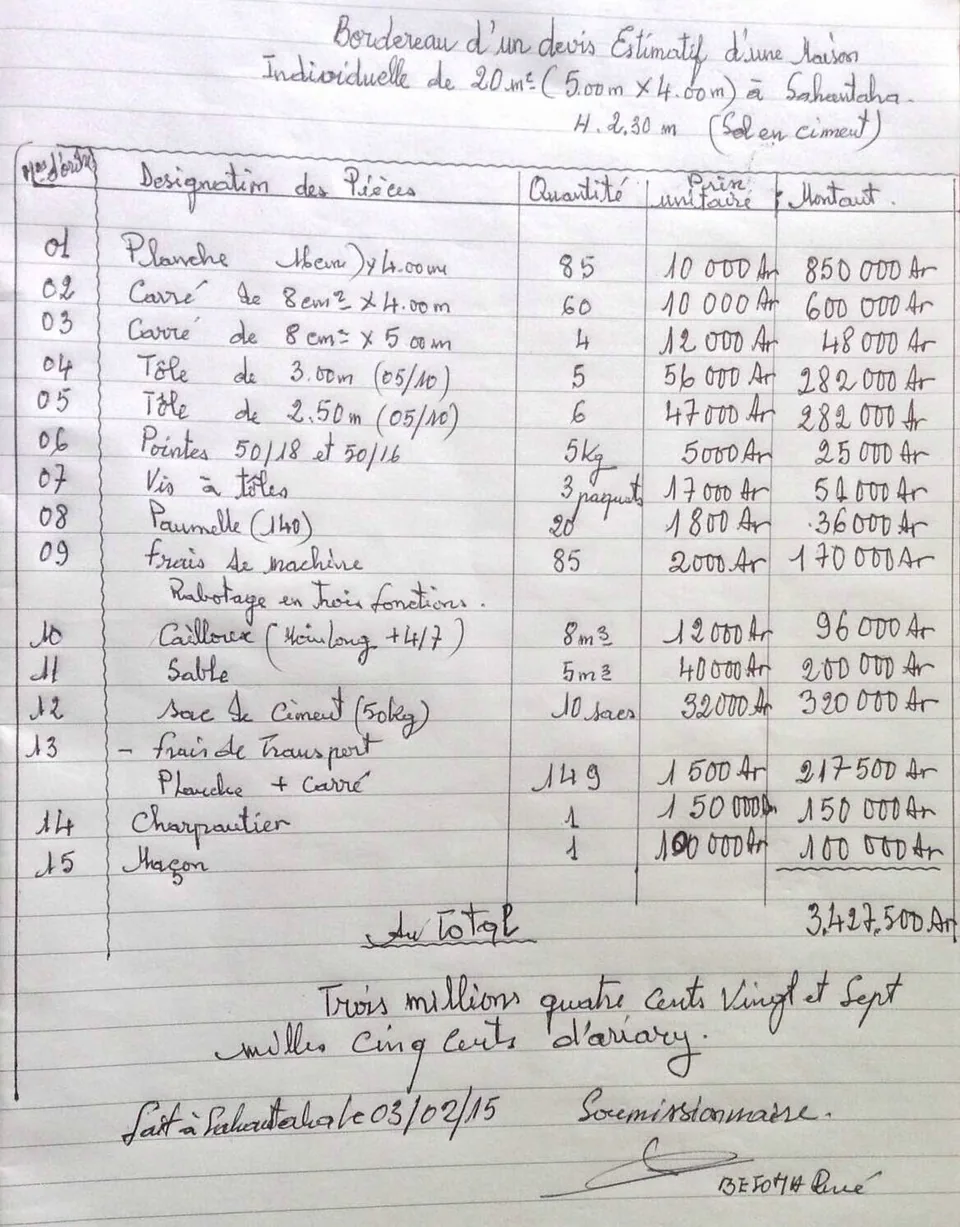 Bordereau d'un devis Estimatif d'une Maison
Individuelle de 20m² (5.00m X 4.00m) à Sahantaha.
H. 2,30 m (Sol en ciment)
Nos d'ordre Designation des Pièces Quantité Prix unitaire Montant.
01 Planche 16cm) x 4.00m 85 10 000 Ar 850 000 Ar
02 Carré de 8cm² X 4.00m 60 10 000 Ar 600 000 Ar
03 Carré de 8cm² X 5 00m 4 12 000 Ar 48 000 Ar
04 Tôle de 3.00m (05/10) 5 56 000 Ar 282 000 Ar
05 Tôle de 2.50m (05/10) 6 47 000 Ar 282 000 Ar
06 Pointes 50/18 et 50/16 5kg 5000 Ar 25 000 Ar
07 Vis à tôles 3 paquets 17 000 Ar 51 000 Ar
08 Paumelle (140) 20 1 800 Ar 36 000 Ar
09 frais de machine 85 2000 Ar 170 000 Ar
Rabotage en trois fonctions.
10 Cailloux ( +4/7) 8m3 12 000 Ar 96 000 Ar
11 Sable 5m3 40 000 Ar 200 000 Ar
12 sac de Ciment (50kg) 10 sacs 32000 Ar 320 000 Ar
13 - frais de Transport
Planche + Carré 149 1 500 Ar 217 500 Ar
14 Charpantier 1 150 000 Ar 150 000 Ar
15 Maçon 1 100 000 Ar 100 000 Ar
Au Total 3,427,500 Ar
Trois millions quatre Cents Vingt et Sept
milles Cinq Cents d'ariary.
fait à Sahantaha le 03/02/15 Soumissionnaire.
René